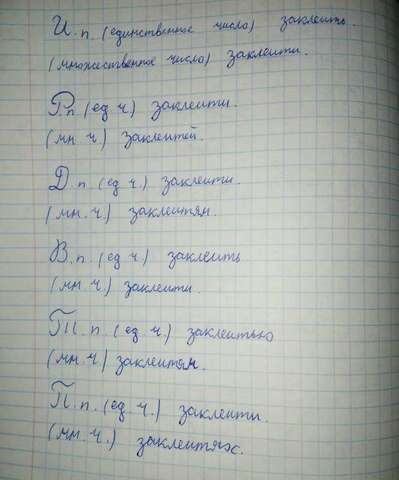 И. п. (единственное число) заклеить.
(множественное число) заклеити.
Р п (ед ч) заклеити.
(мн. ч) заклеитей.
Д. п (ед ч.) заклеити.
(мн. ч.) заклеитям.
В. п (ед ч) заклеить
(мн. ч.) заклеити.
Т. п. (ед ч.) заклеитью
(мн. ч.) заклеитям.
П. п. (ед. ч.) заклеити.
(мн. ч.) заклеитях.